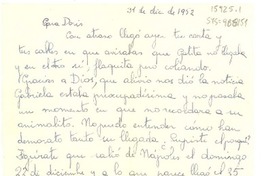 31 de dic de 1952
15925-1
Cara Doris
Con atraso llegó ayer tu carta y
tus cables en que avisabas que Gatito llegaba
y en el otro sí flaquita pero coleando.
Gracias a Dios, que alivio nos dió la noticia
Gabriela estaba preocupadísima y no pasaba
un momento en que no recordara a su
animalito. No puedo entender cómo han
demorado tanto su llegada
Imagínate que salió de Nápoles el domingo
22 de diciembre y a lo que parece llegó el 25